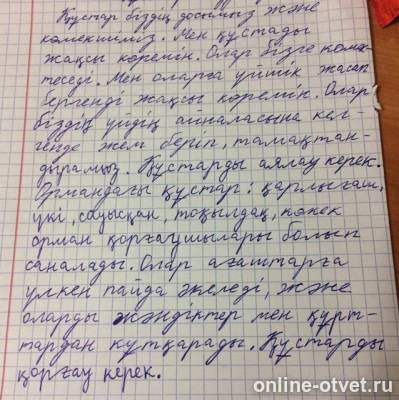 Құстар біздің досымыз және
көмекшіміз. Мен құстады
жақсы көремін. Олар бізге көмек-
теседі. Мен оларға үйшік жасап
бергенді жақсы көремін. Олар
біздің үйдің айналасына кел-
генде жем беріп, тамақтан-
дырамыз. Құстарды аялау керек.
Ормандағы құстар: қарлығаш,
үкі, сауысқан, тоқылдақ, көкек
орман қорғаушылары болып
саналады. Олар ағаштарға
үлкен пайда әкеледі, және
оларды жәндіктер мен құрт-
тардан құтқарады. Құстарды
қорғау керек.
online-otvet.ru